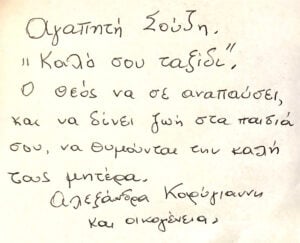 αγαπητή Σούζη.
"Καλό σου ταξίδι".
Ο Θεός να σε αναπαύσει,
και να δίνει ζωή στα παιδιά
σου, να θυμούνται την καλή
τους μητέρα.
Αλεξάνδρα Καρύγιαννη
και οικογένεια,